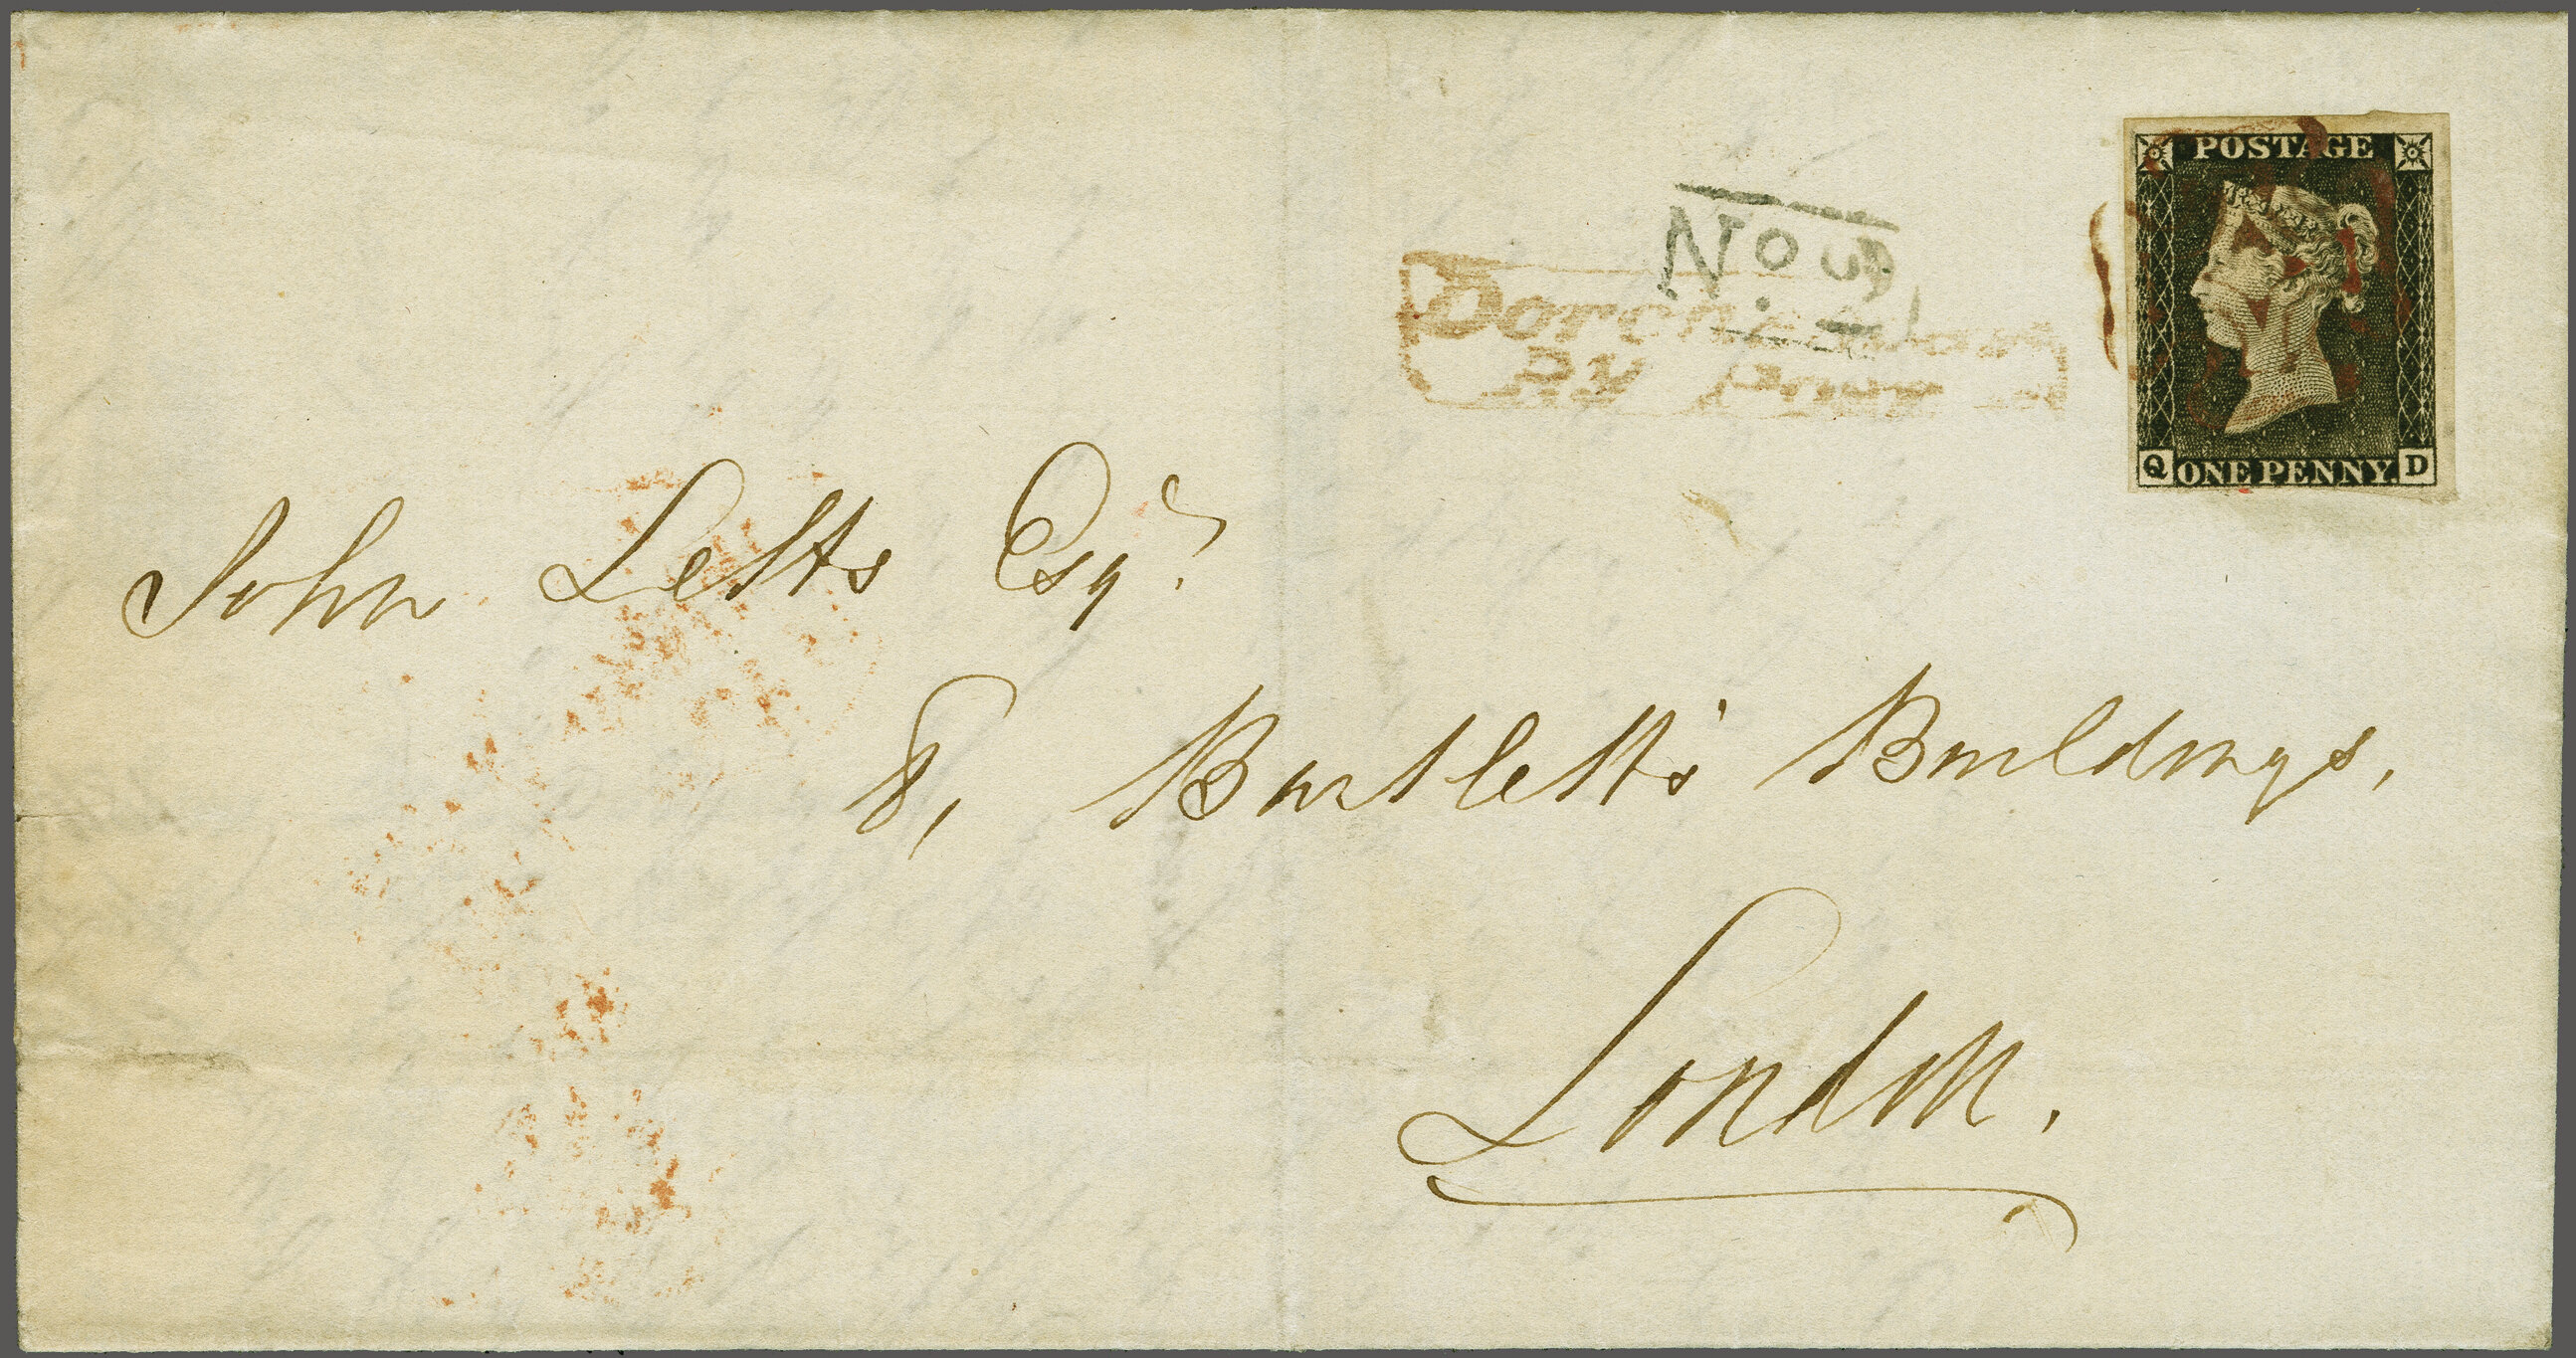 POSTAGE
No. 3
Dorchester
Py Post
Q ONE PENNY. D
John Letts Esqr.
8, Bartlett's Buildings,
London.